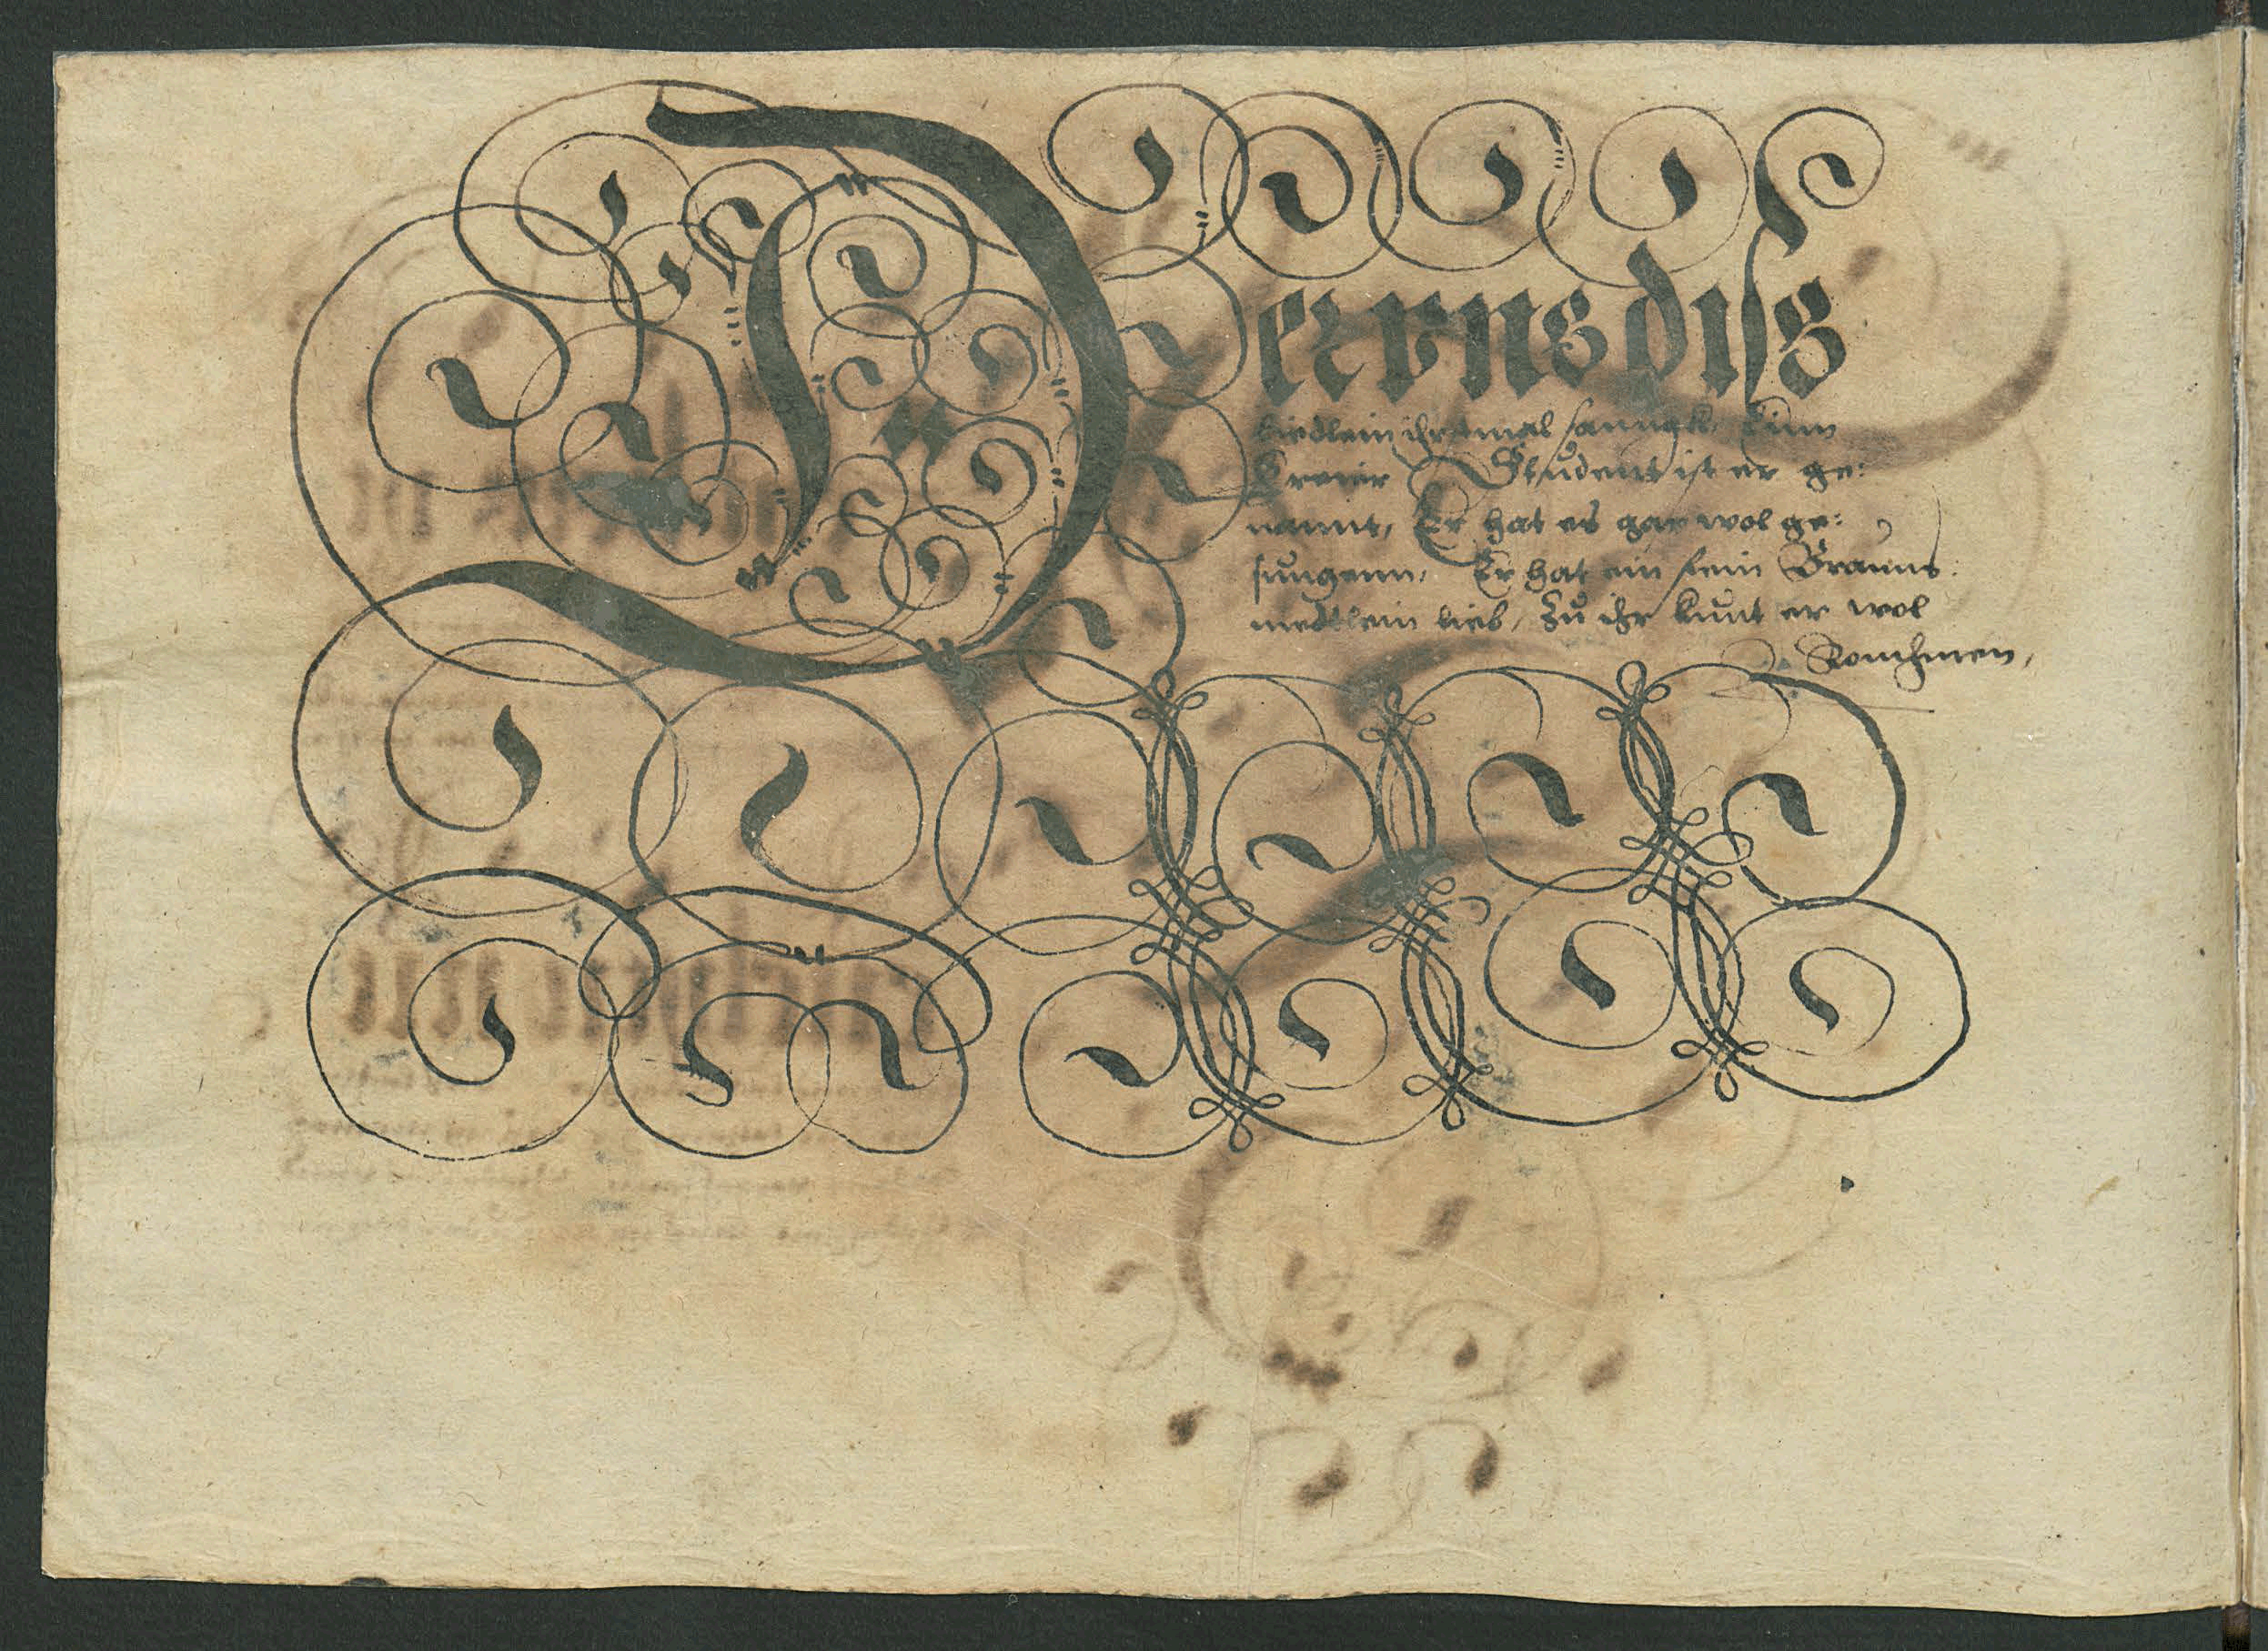 Deer uns diß
Liedlein ihrsmal sanngk, Einn
Freier Student ist er ge:
nannt, Er hat es gar wol ge:
sungenn, Er hat ein fein Brauns
medtlein lieb, Zu ihr kunt er wol
Komhmen,